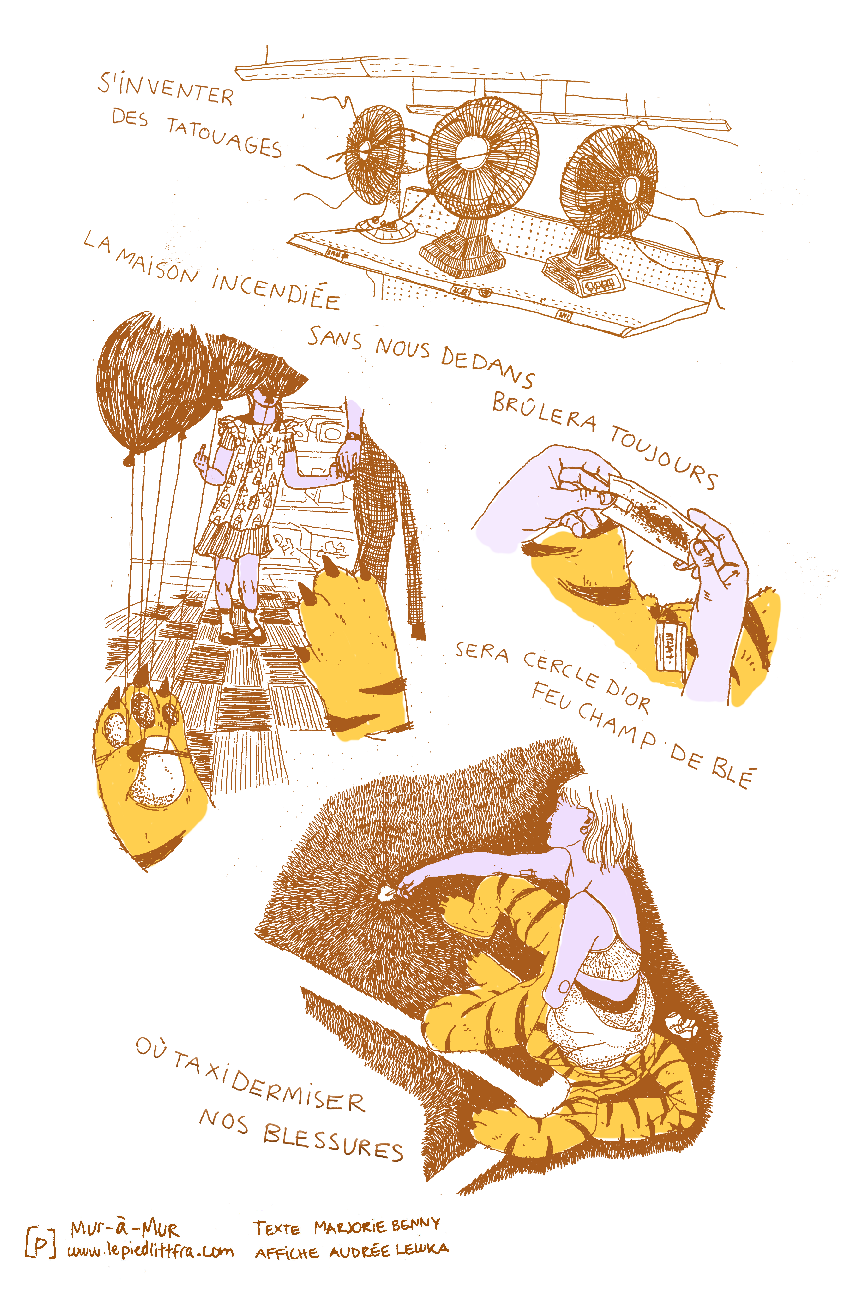 S'INVENTER
DES TATOUAGES
LA MAISON INCENDIÉE
SANS NOUS DEDANS
BRÛLERA TOUJOURS
SERA CERCLE D'OR
FEU CHAMP DE BLÉ
OÙ TAXIDERMISER
NOS BLESSURES
[P] MUR-À-MUR
www.lepiedlittfra.com
TEXTE MARJORIE BENNY
AFFICHE AUDRÉE LEWKA